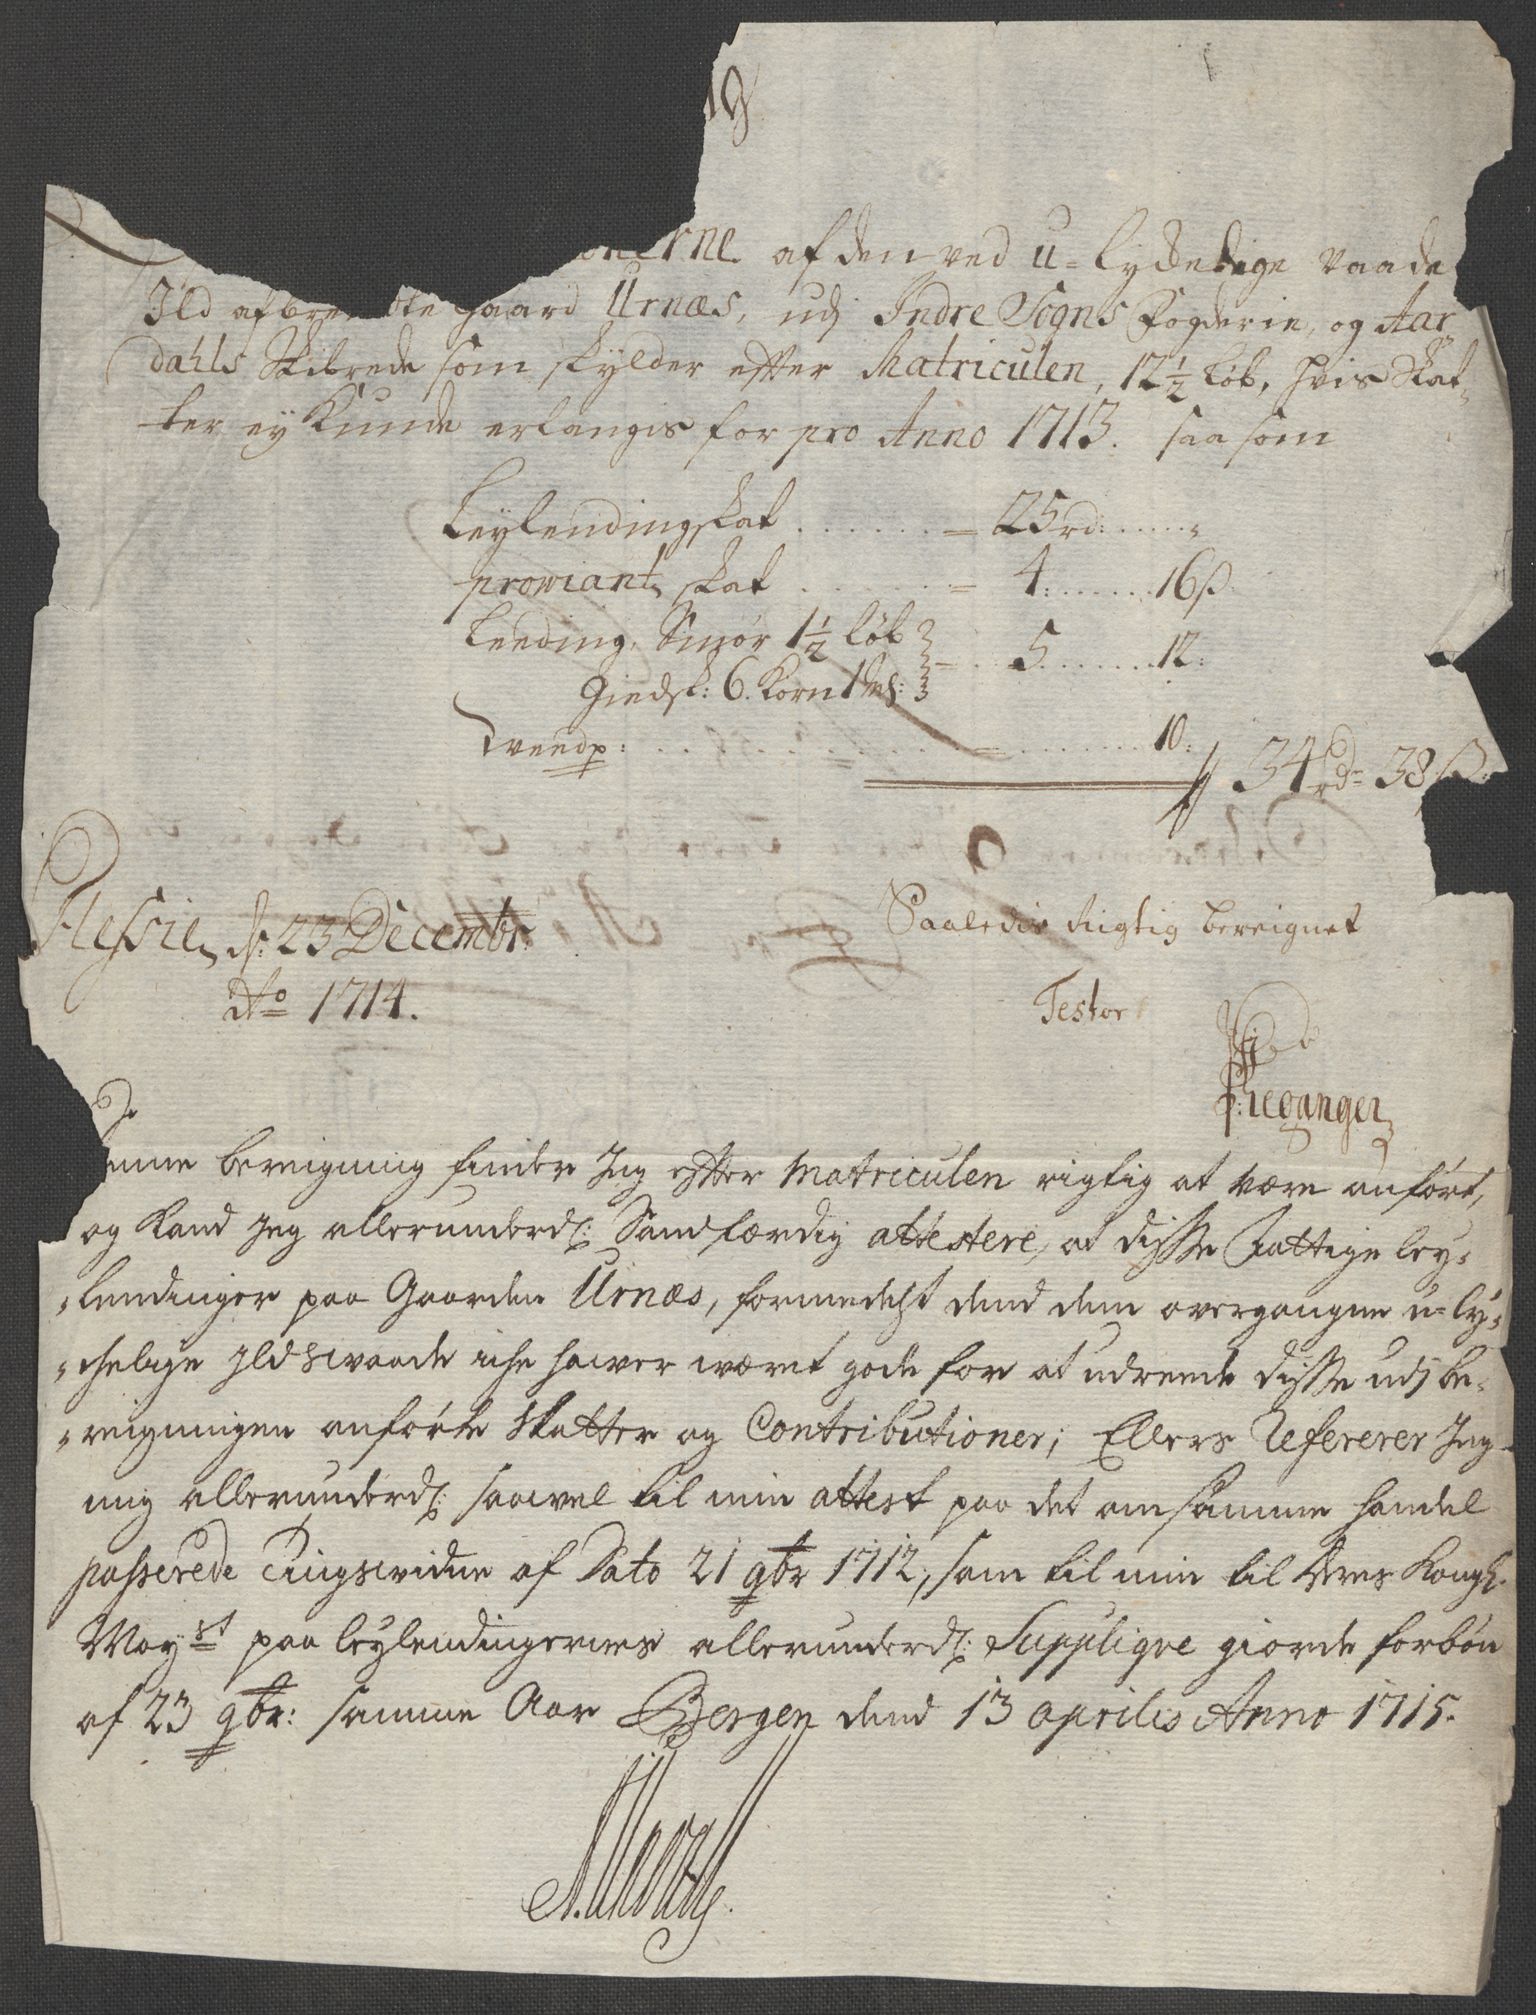 onerne af den ved u-lyckelige vaade
Ild afbrendte gaard Urnæs, udj Indre Sogns Fogderie, og Aar
dahls Skibrede som skylder efter Matriculen, 12 1/2 løb, hvis Skat-
ter ey Kunde erlangis for pro Anno 1713. saa som
Leylendingskat . . . . . . = 25 rd: . . . . "
prowiant skat . . . . . = 4: . . . . . 16 ß
Leeding, Smør 1 1/2 løb
Giedsk: 6. Korn 1 = . . 5 . . . . . 12:
. . . . . . . . . = . . . . . . 10:
34 rd = 38 ß:
d: 23 Decembr:
Ao 1714.
Saaledis Rigtig bereignet
Testor
enne bereigning finder Jeg efter Matriculen rigtig at være anført,
og kand Jeg allerunderd: Sandfærdig attestere, at disse Fattige ley-
-lendinger paa Gaarden Urnæs, formedelst dend dem overgangne u-ly-
-chelige Ildswaade iche hawer wæret gode for at udreede disse udj be-
-reigningen anførte Skatter og Contributioner; Ellers Refererer Jeg
mig allerunderd: saawel til min attest paa det om samme handel
passerede Tingswidne af Dato 21 9br 1712, som til min til Deres Kongl.
May.st paa leylendingernes allerunderd: Supplique giorde forbøn
af 23 9br: samme Aar Bergen dend 13 aprilis Anno 1715.